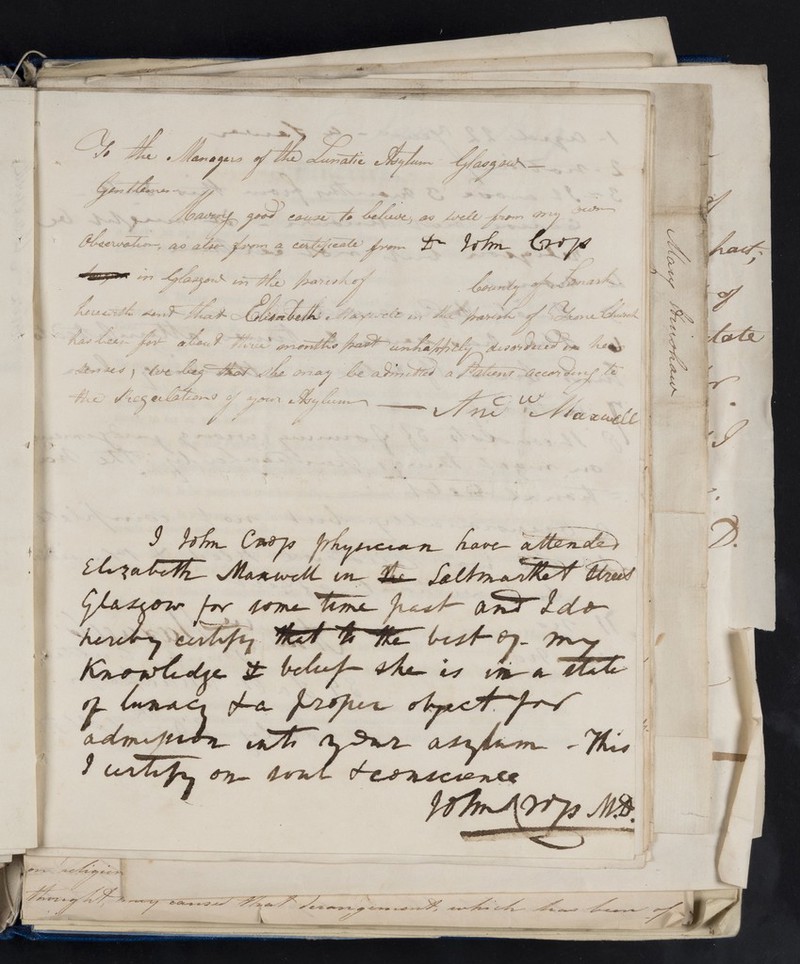 To the Managers of the Lunatic Asylum Glasgow —
Gentlemen
Having good cause to believe, as well from my own
Observation, as also from a certificate from Dr John Crofs
in Glasgow in the parish of County of Lanark
herewith sent that Elisabeth Maxwell in the parish of Trone Church
has been for about three months past unhappily disordered in her
senses; we beg that she may be admitted a Patient according to
the Regulations of your Asylum — And.w Maxwell
I John Crofs physician have attended
Elizabeth Maxwell in the Saltmarket Street
Glasgow for some time past and I do
hereby certify that to the best of my
Knowledge & belief she is in a state
of lunacy & a proper object for
admifsion into your asylum - This
I certify on soul & conscience
John Crofs M.D.
Mary Hinshaw
of
hact;
of
state
I
D.
on religion
thought may caused that derangement, which has been of